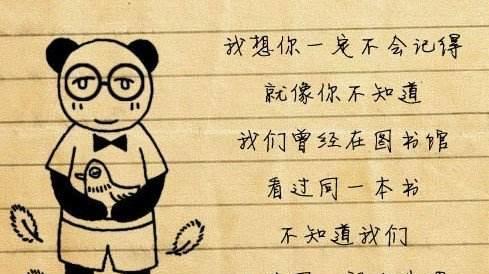 我想你一定不会记得
就像你不知道
我们曾经在图书馆
看过同一本书
不知道我们